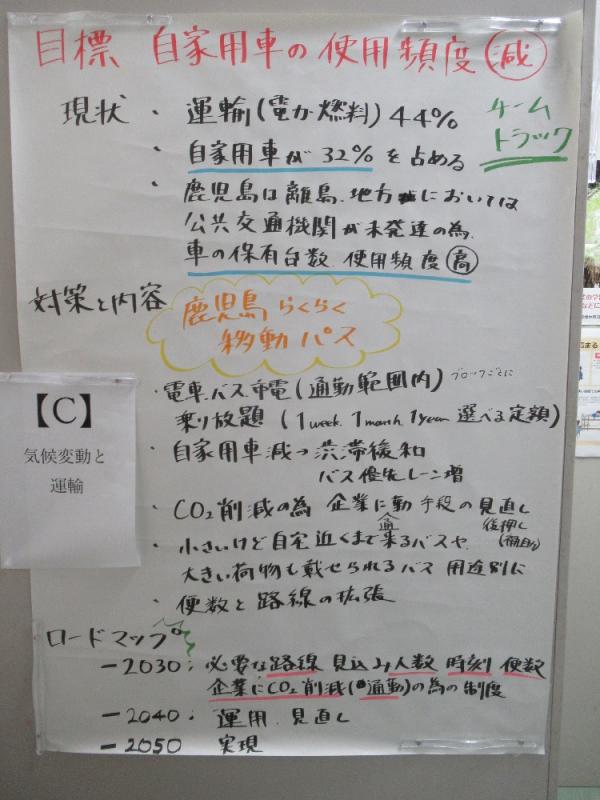 目標 自家用車の使用頻度減
チーム
トラック
現状 ・ 運輸(電力・燃料) 44%
・ 自家用車が32%を占める
・ 鹿児島は離島、地方においては
公共交通機関が未発達の為、
車の保有台数 使用頻度高
対策と内容
鹿児島らくらく
移動パス
・電車、バス、市電(通勤範囲内) ブロックごとに
乗り放題 (1week, 1month, 1year 選べる定額)
・自家用車減→渋滞緩和
バス優先レーン増
・CO2削減の為 企業に通勤手段の見直し
後押し
(補助)
・小さいけど自宅近くまで来るバスや、
大きい荷物も載せられるバス 用途別に
・便数と路線の拡張
ロードマップ
－2030: 必要な路線 見込み人数 時刻 便数
企業にCO2削減(通勤)の為の制度
－2040: 運用、見直し
－2050 実現
【C】
気候変動と
運輸